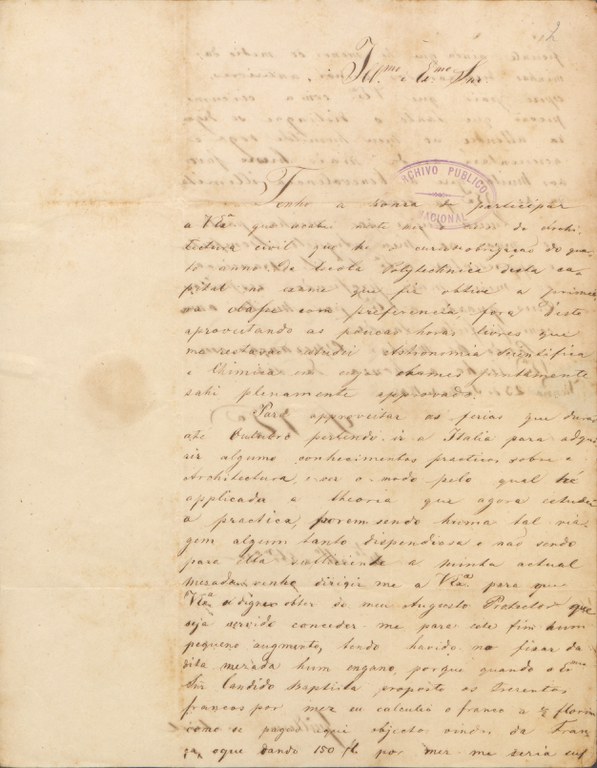 2
Illmo e Exmo Snr.
ARCHIVO PUBLICO
NACIONAL
Tenho a honra de participar
a V Exa que acabei este de Archi
tectura civil que he curso obrigação do quar
to anno da Escola Polytechnica desta ca
pital no exame que fiz obtive a primei
ra classe com preferencia, fora disto
aproveitando as poucas horas livres que
me restavão estudei Astronomia Scientifica
e Chimica em cujo exames juntamente
sahi plenamente approvado.
Para approveitar as ferias que durão
até Outubro pertendo ir a Italia para adqui
rir alguns conhecimentos practicos sobre a
Architectura, e ver o modo pelo qual hé
applicada a theoria que agora estudei
a practica, porem sendo huma tal via
gem algum tanto dispendiosa e não sendo
para ella sufficiente a minha actual
mezada, venho dirigir me a V Exa para que
V Exa se digne obter de meu Augusto Protector que
seja servido conceder-me para este fim hum
pequeno augmento, tendo havido no fixar da
dita mezada hum engano, porque quando o Exmo
Snr Candido Baptista propoz os Trezentos
francos por mez eu calculei o franco a ½ florim
como se pagão aqui objectos vindos da Fran
ça, o que dando 150 fl. por mez me seria suf